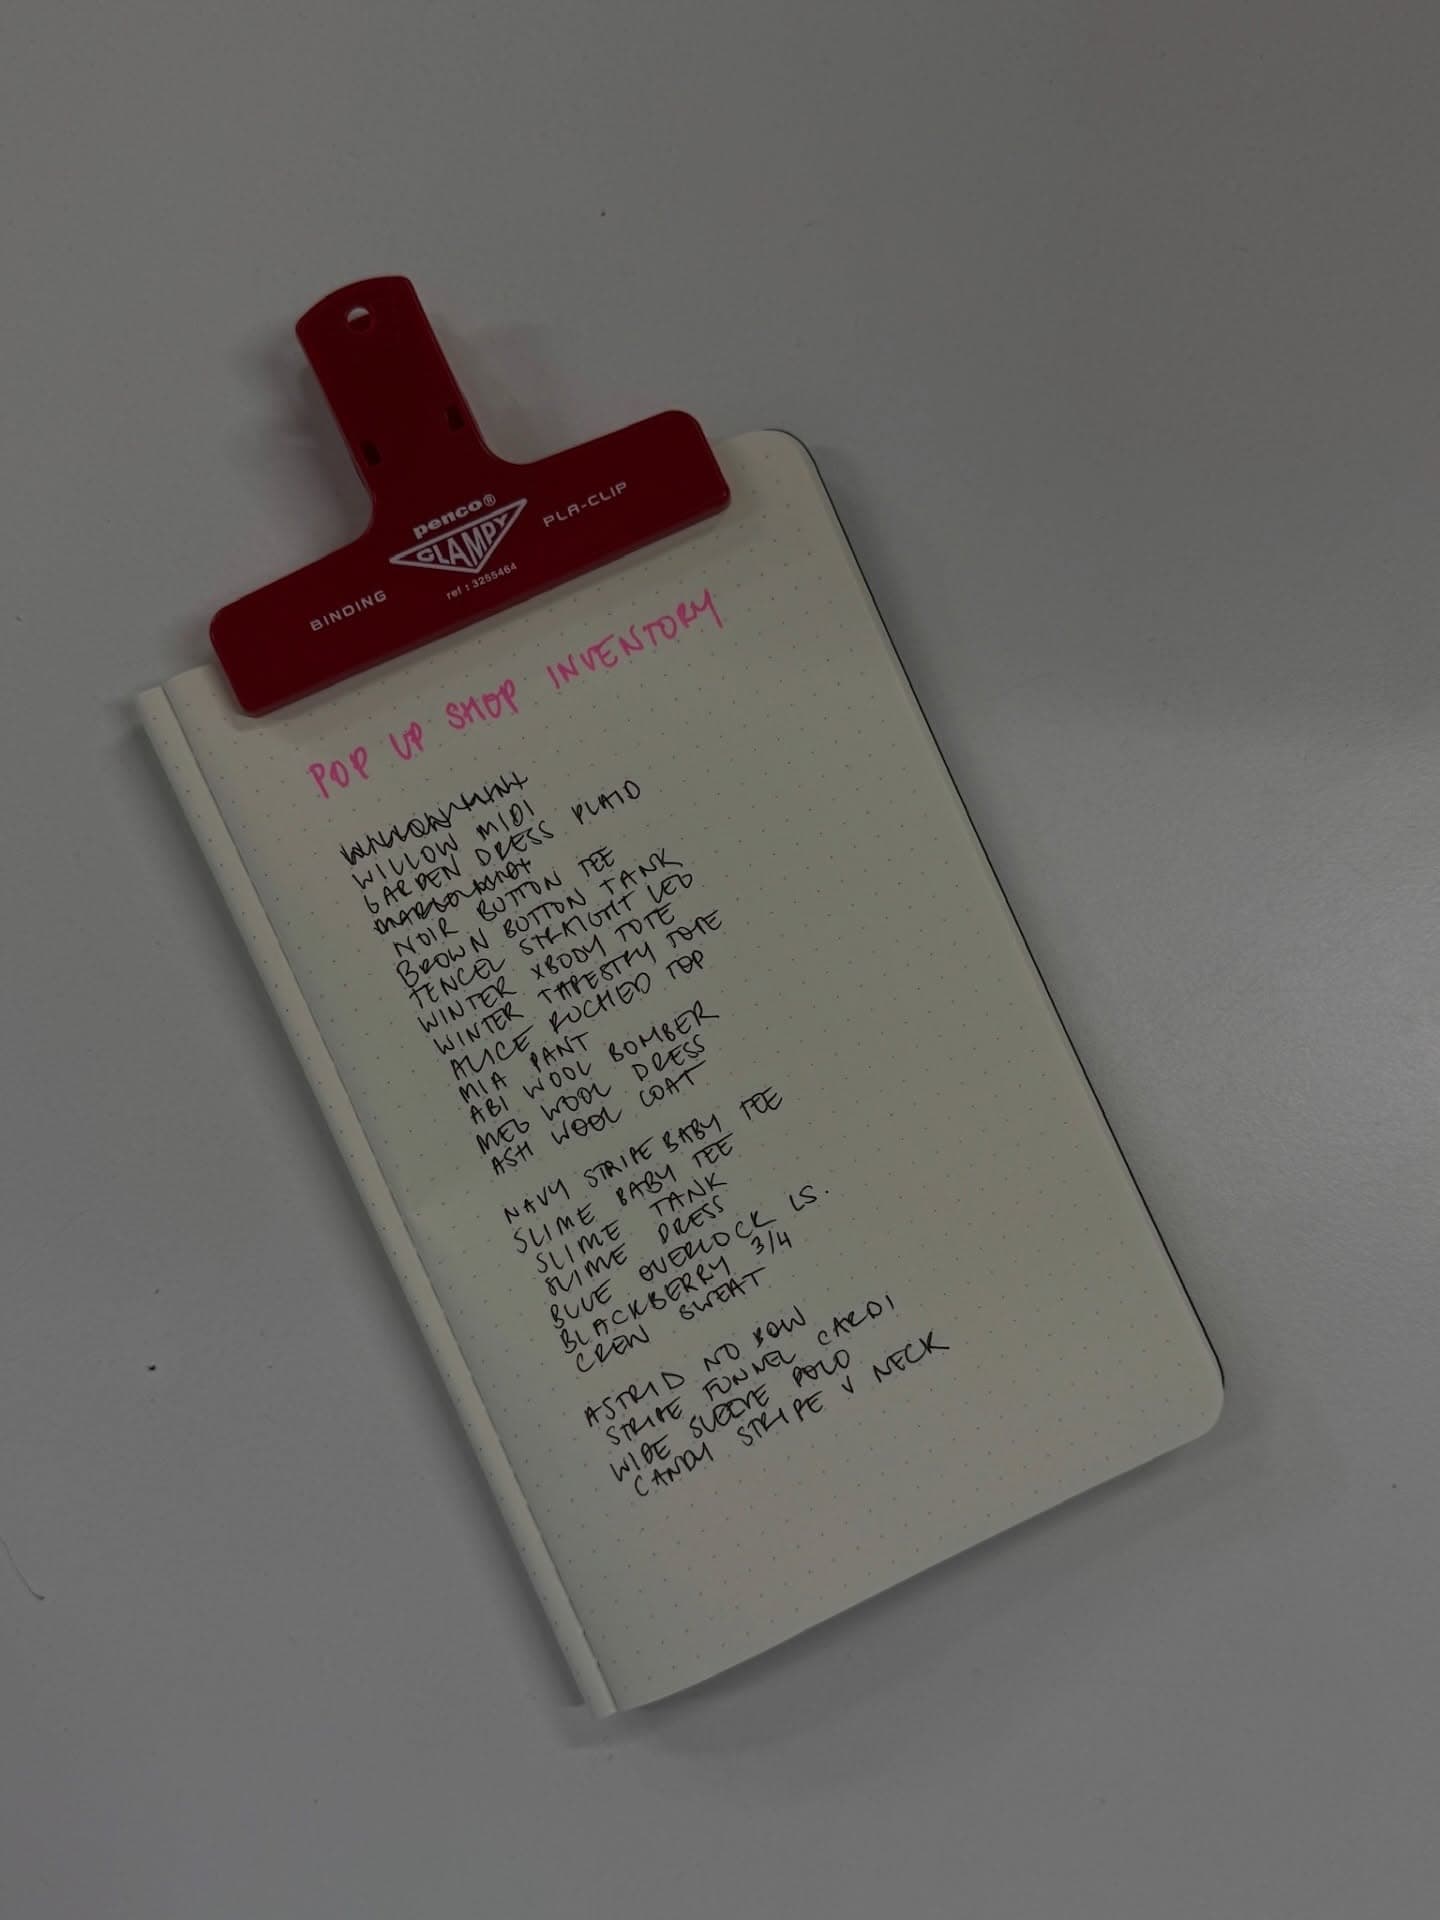 penco®
CLAMPY
BINDING
PLA-CLIP
ref : 3255464
POP UP SHOP INVENTORY
WILLOW MIDI
GARDEN DRESS PLAID
NOIR BUTTON TEE
BROWN BUTTON TANK
TENCEL STRAIGHT LEG
WINTER XBODY TOTE
WINTER TAPESTRY TOTE
ALICE RUCHED TOP
MIA PANT
ABI WOOL BOMBER
MEG WOOL DRESS
ASH WOOL COAT
NAVY STRIPE BABY TEE
SLIME BABY TEE
SLIME TANK
SLIME DRESS
BLUE OVERLOCK LS.
BLACKBERRY 3/4
CREW SWEAT
ASTRID NO BOW
STRIPE FUNNEL CARDI
WIDE SLEEVE POLO
CANDY STRIPE V NECK